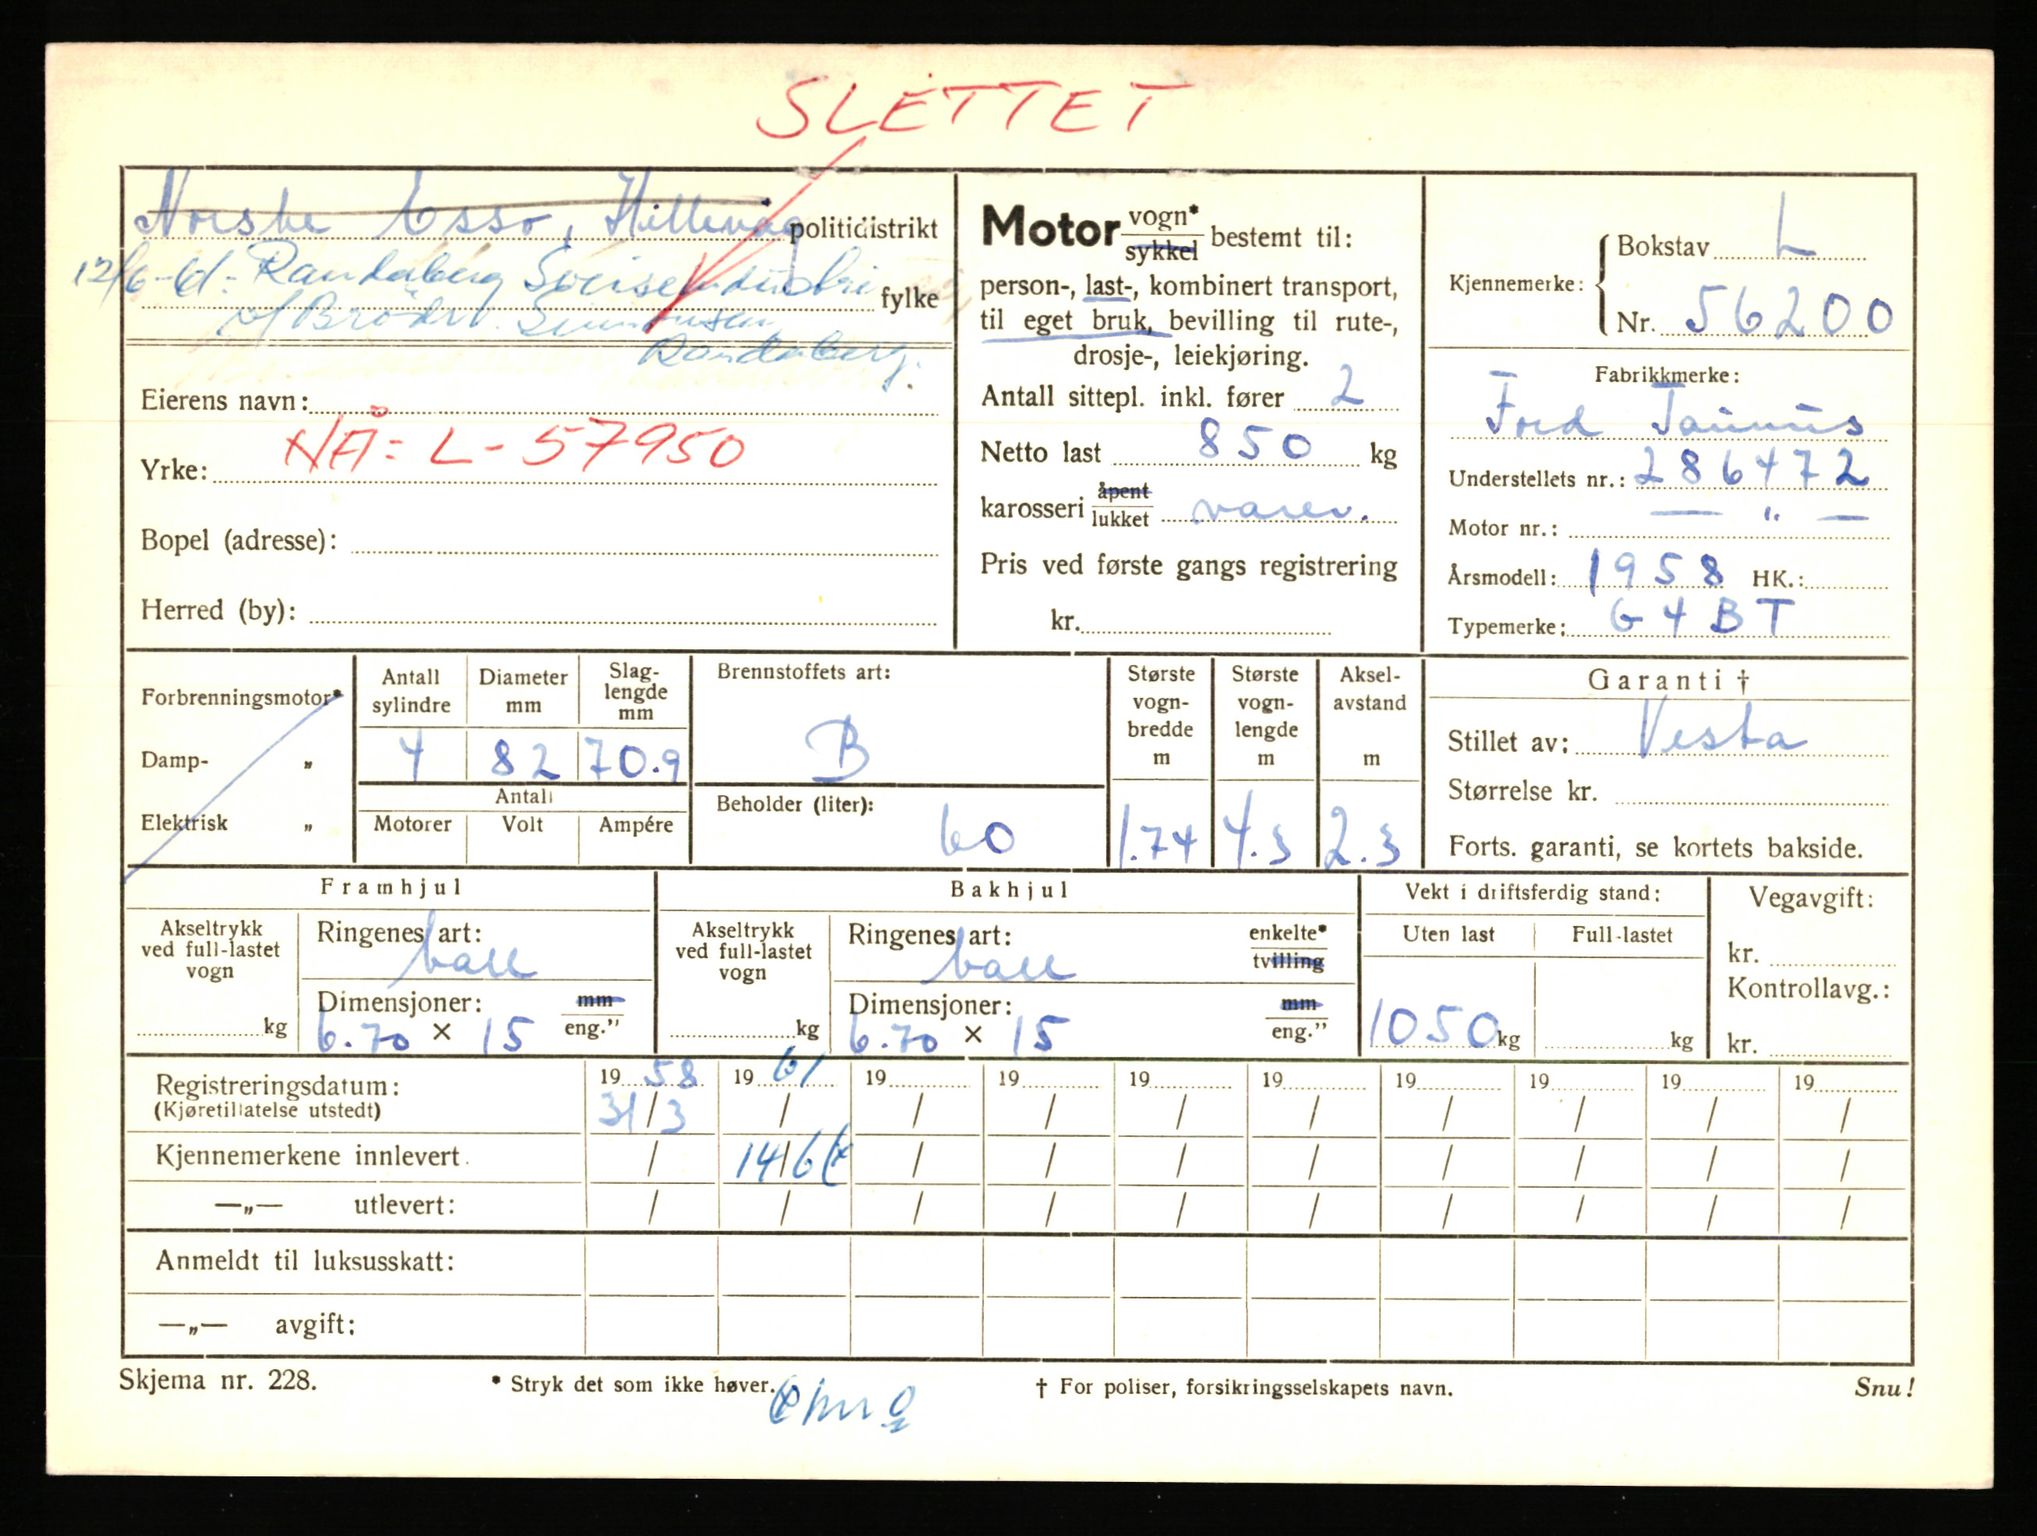 SLETTET
Norske Esso, Hillevåg politidistrikt
12/6-61: Randaberg Sveiseindustri fylke
v/ Brødr. Simonsen
Randaberg.
Eierens navn:
NÅ: L-57950
Yrke:
Bopel (adresse):
Herred (by):
Motor vogn* sykkel bestemt til:
person-, last-, kombinert transport,
til eget bruk, bevilling til rute-,
drosje-, leiekjøring.
Antall sittepl. inkl. fører 2
Netto last 850 kg
karosseri åpent lukket varev.
Pris ved første gangs registrering
kr.
Kjennemerke: Bokstav L
Nr. 56200
Fabrikkmerke:
Ford Taunus
Understellets nr.: 286472
Motor nr.: — " —
Årsmodell: 1958 HK.:
Typemerke: G4BT
Forbrenningsmotor*
Damp- „
Elektrisk „
Antall sylindre Diameter mm Slag-lengde mm
4 82 70.9
Antall
Motorer Volt Ampére
Brennstoffets art:
B
Beholder (liter):
60
Største vogn-bredde m 1.74
Største vogn-lengde m 4.3
Aksel-avstand m 2.3
Garanti †
Stillet av: Vesta
Størrelse kr.
Forts. garanti, se kortets bakside.
Framhjul
Akseltrykk ved full-lastet vogn
kg
Ringenes art:
ball
Dimensjoner: mm
6.70 × 15 eng."
Bakhjul
Akseltrykk ved full-lastet vogn
kg
Ringenes art: enkelte*
ball tvilling
Dimensjoner: mm
6.70 × 15 eng."
Vekt i driftsferdig stand:
Uten last Full-lastet
1050 kg kg
Vegavgift:
kr.
Kontrollavg.:
kr.
Registreringsdatum: 19 58 19 61 19 19 19 19 19 19 19 19
(Kjøretillatelse utstedt) 31/3 / / / / / / / / /
Kjennemerkene innlevert. / 14/6 / / / / / / / /
—„— utlevert: / / / / / / / / / /
Anmeldt til luksusskatt:
—„— avgift:
Skjema nr. 228.
* Stryk det som ikke høver.
† For poliser, forsikringsselskapets navn.
Snu!